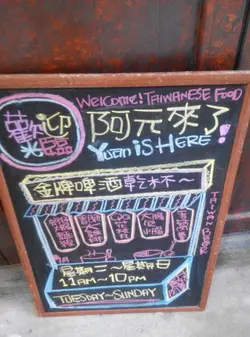 Welcome! TAIWANESE FOOD
歡迎光臨
阿元來了!
Yuan iS HERE!
金牌啤酒乾杯~
TAIWAN BEER
星期二~星期日
11AM~10PM
TUESDAY~SUNDAY